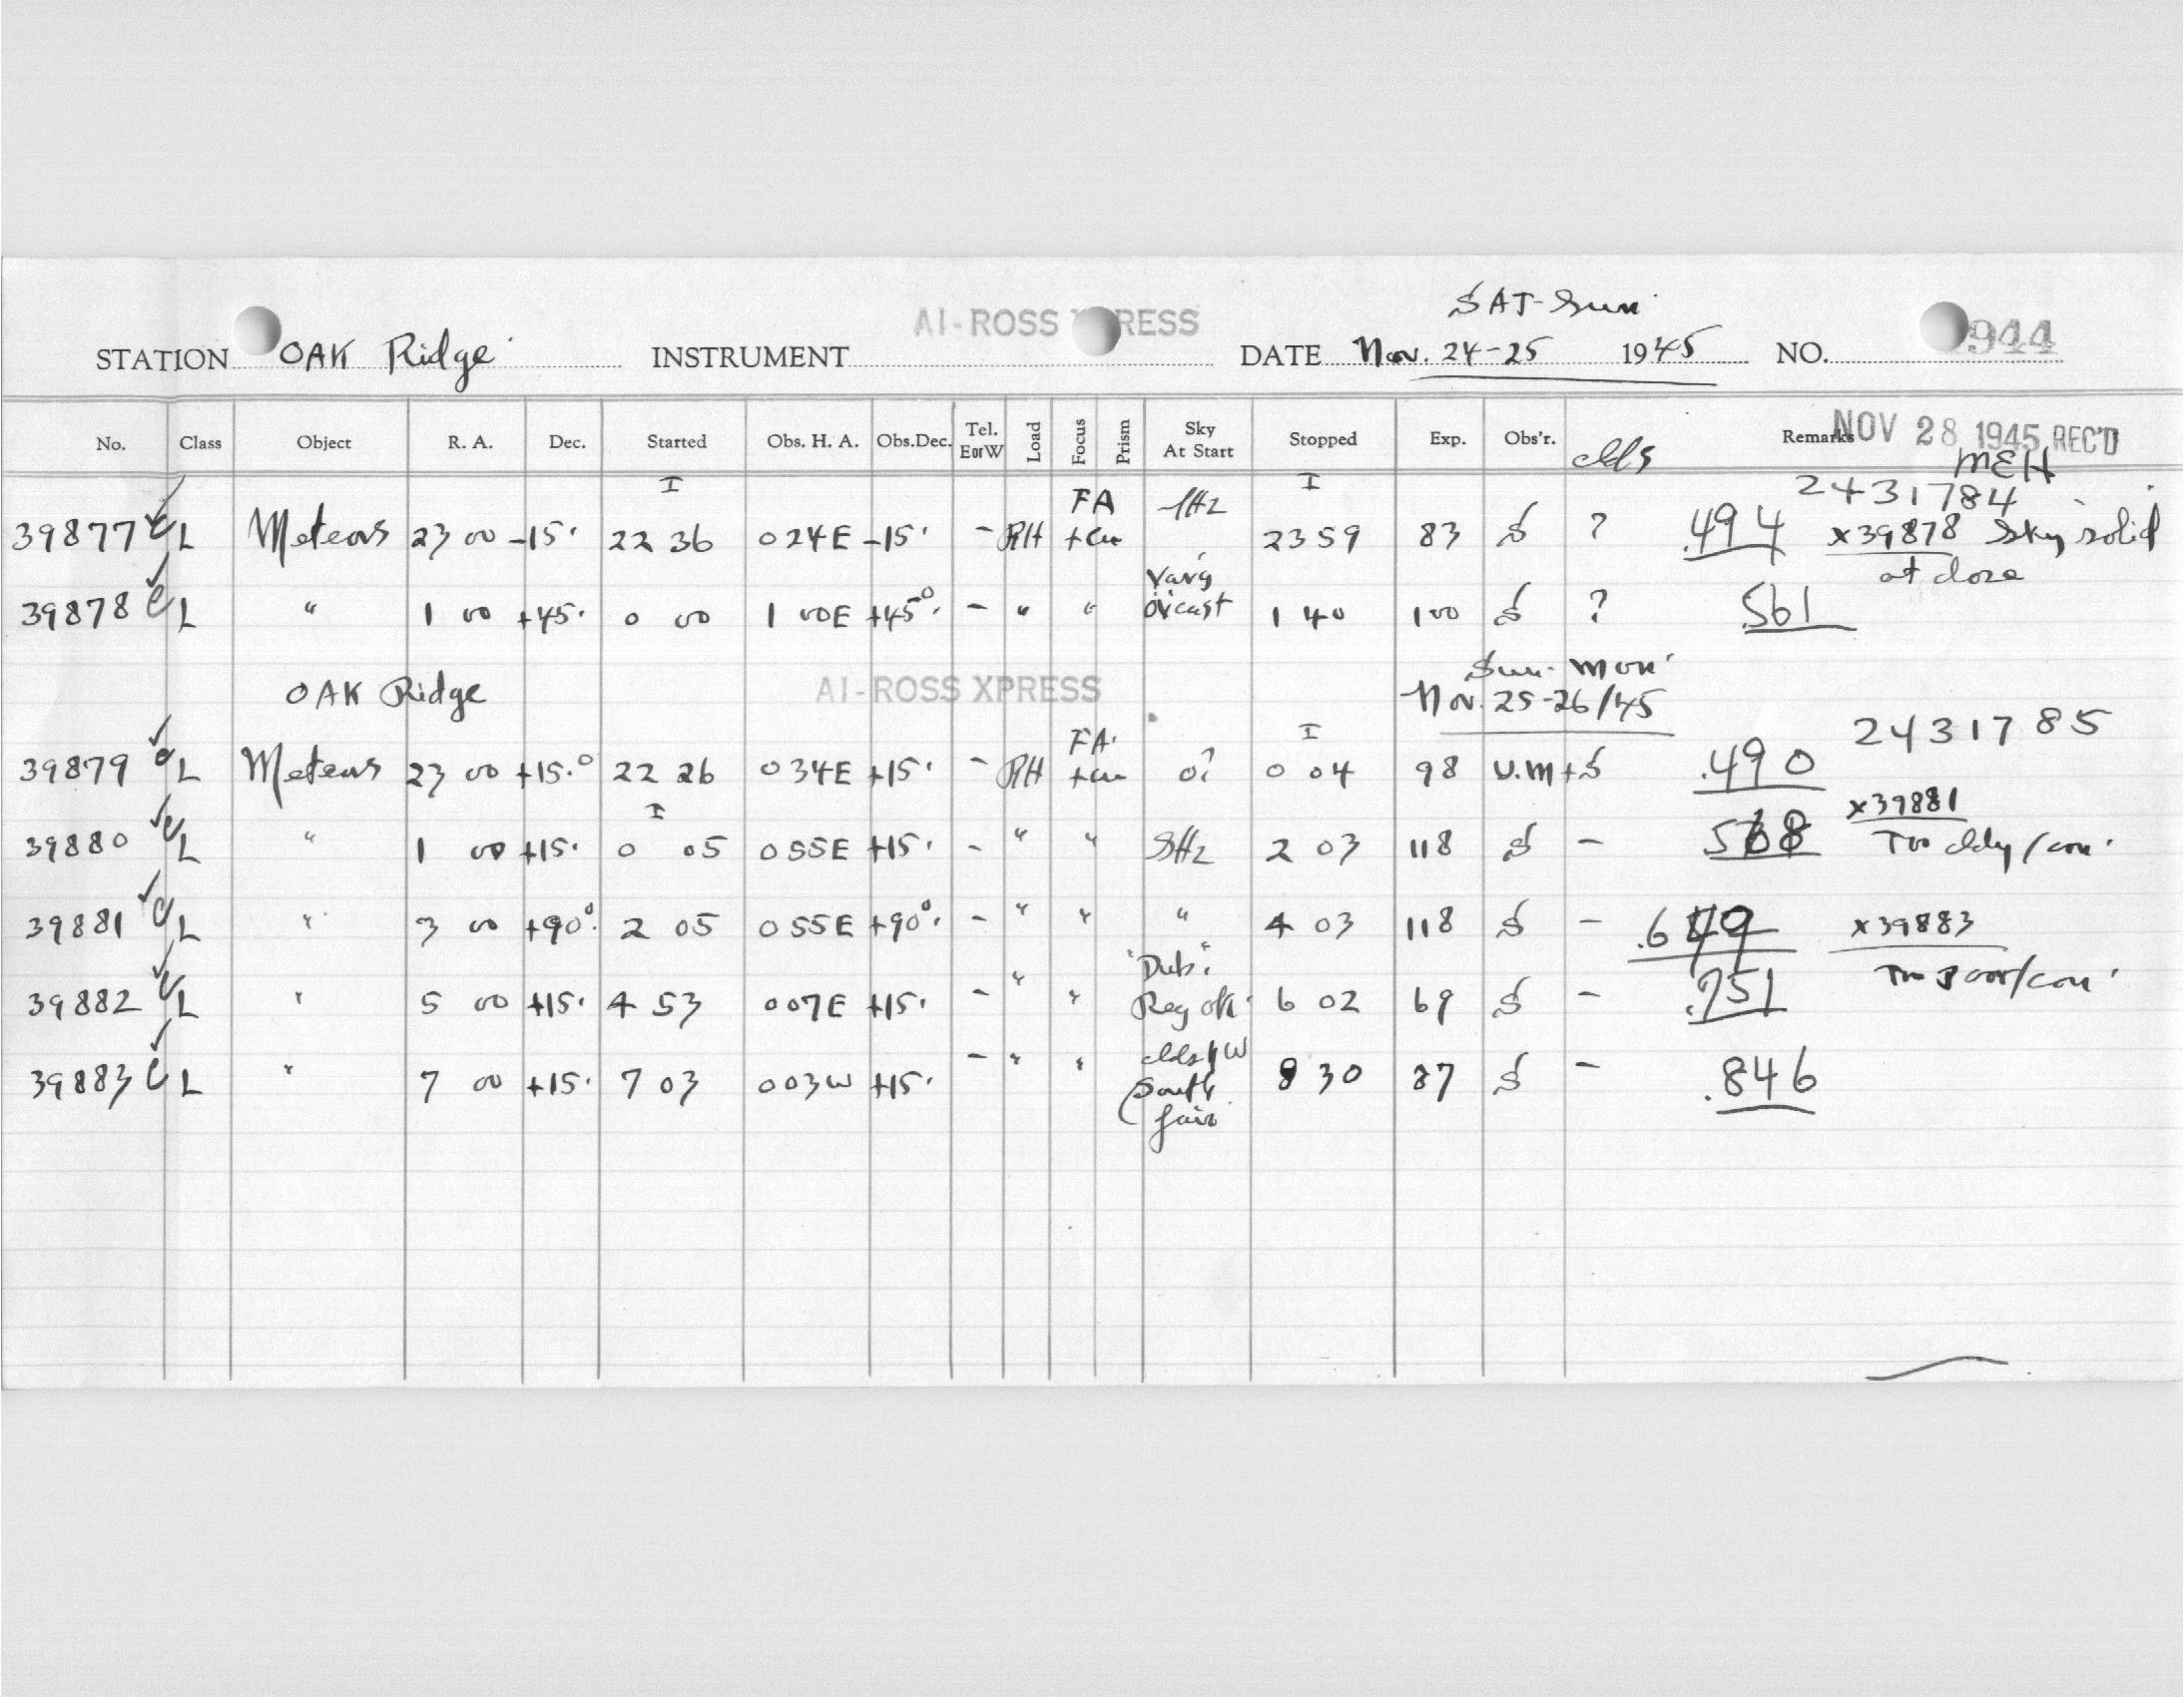 SAT-Sun
STATION OAK Ridge INSTRUMENT AI-ROSS XPRESS DATE Nov. 24-25 1945 NO. 944
No. Class Object R. A. Dec. Started Obs. H. A. Obs.Dec. Tel. EorW Load Focus Prism Sky At Start Stopped Exp. Obs'r. clds Remarks NOV 28 1945 REC'D
MEH
I FA I 2431784
39877 L Meteors 23 00 -15. 22 36 024E -15. - RH 2359 83 S ? .494 x39878 Sky solid
at close
39878 L " 1 00 +45. 0 00 1 00E +45°. - " " 1 40 100 S ? .561
Sun-Mon
OAK Ridge AI-ROSS XPRESS Nov. 25-26/45
FA I 2431785
39879 L Meteors 23 00 +15.° 22 26 034E +15. - RH 0 04 98 V.M+S .490
I x39881
39880 L " 1 00 +15. 0 05 055E +15. - " " SHz 2 03 118 S - Too cldy/con.
39881 L " 3 00 +90°. 2 05 055E +90°. - " " " 4 03 118 S - x39883
39882 L " 5 00 +15. 4 53 007E +15. - " " "Dub." Reg ok. 6 02 69 S - .751 Too poor/con.
39883 L " 7 00 +15. 7 03 003W +15. - " " clds W 8 30 87 S - .846
(South
fair